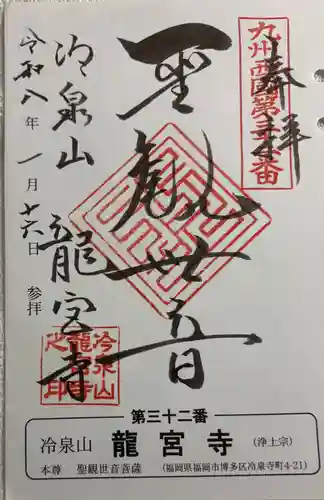 奉拝
九州西国第三十二番
聖観世音
冷泉山
龍宮寺
冷泉山
龍宮寺
之印
令和八年一月十六日 参拝
第三十二番
冷泉山 龍宮寺 (浄土宗)
本尊 聖観世音菩薩 (福岡県福岡市博多区冷泉寺町4-21)